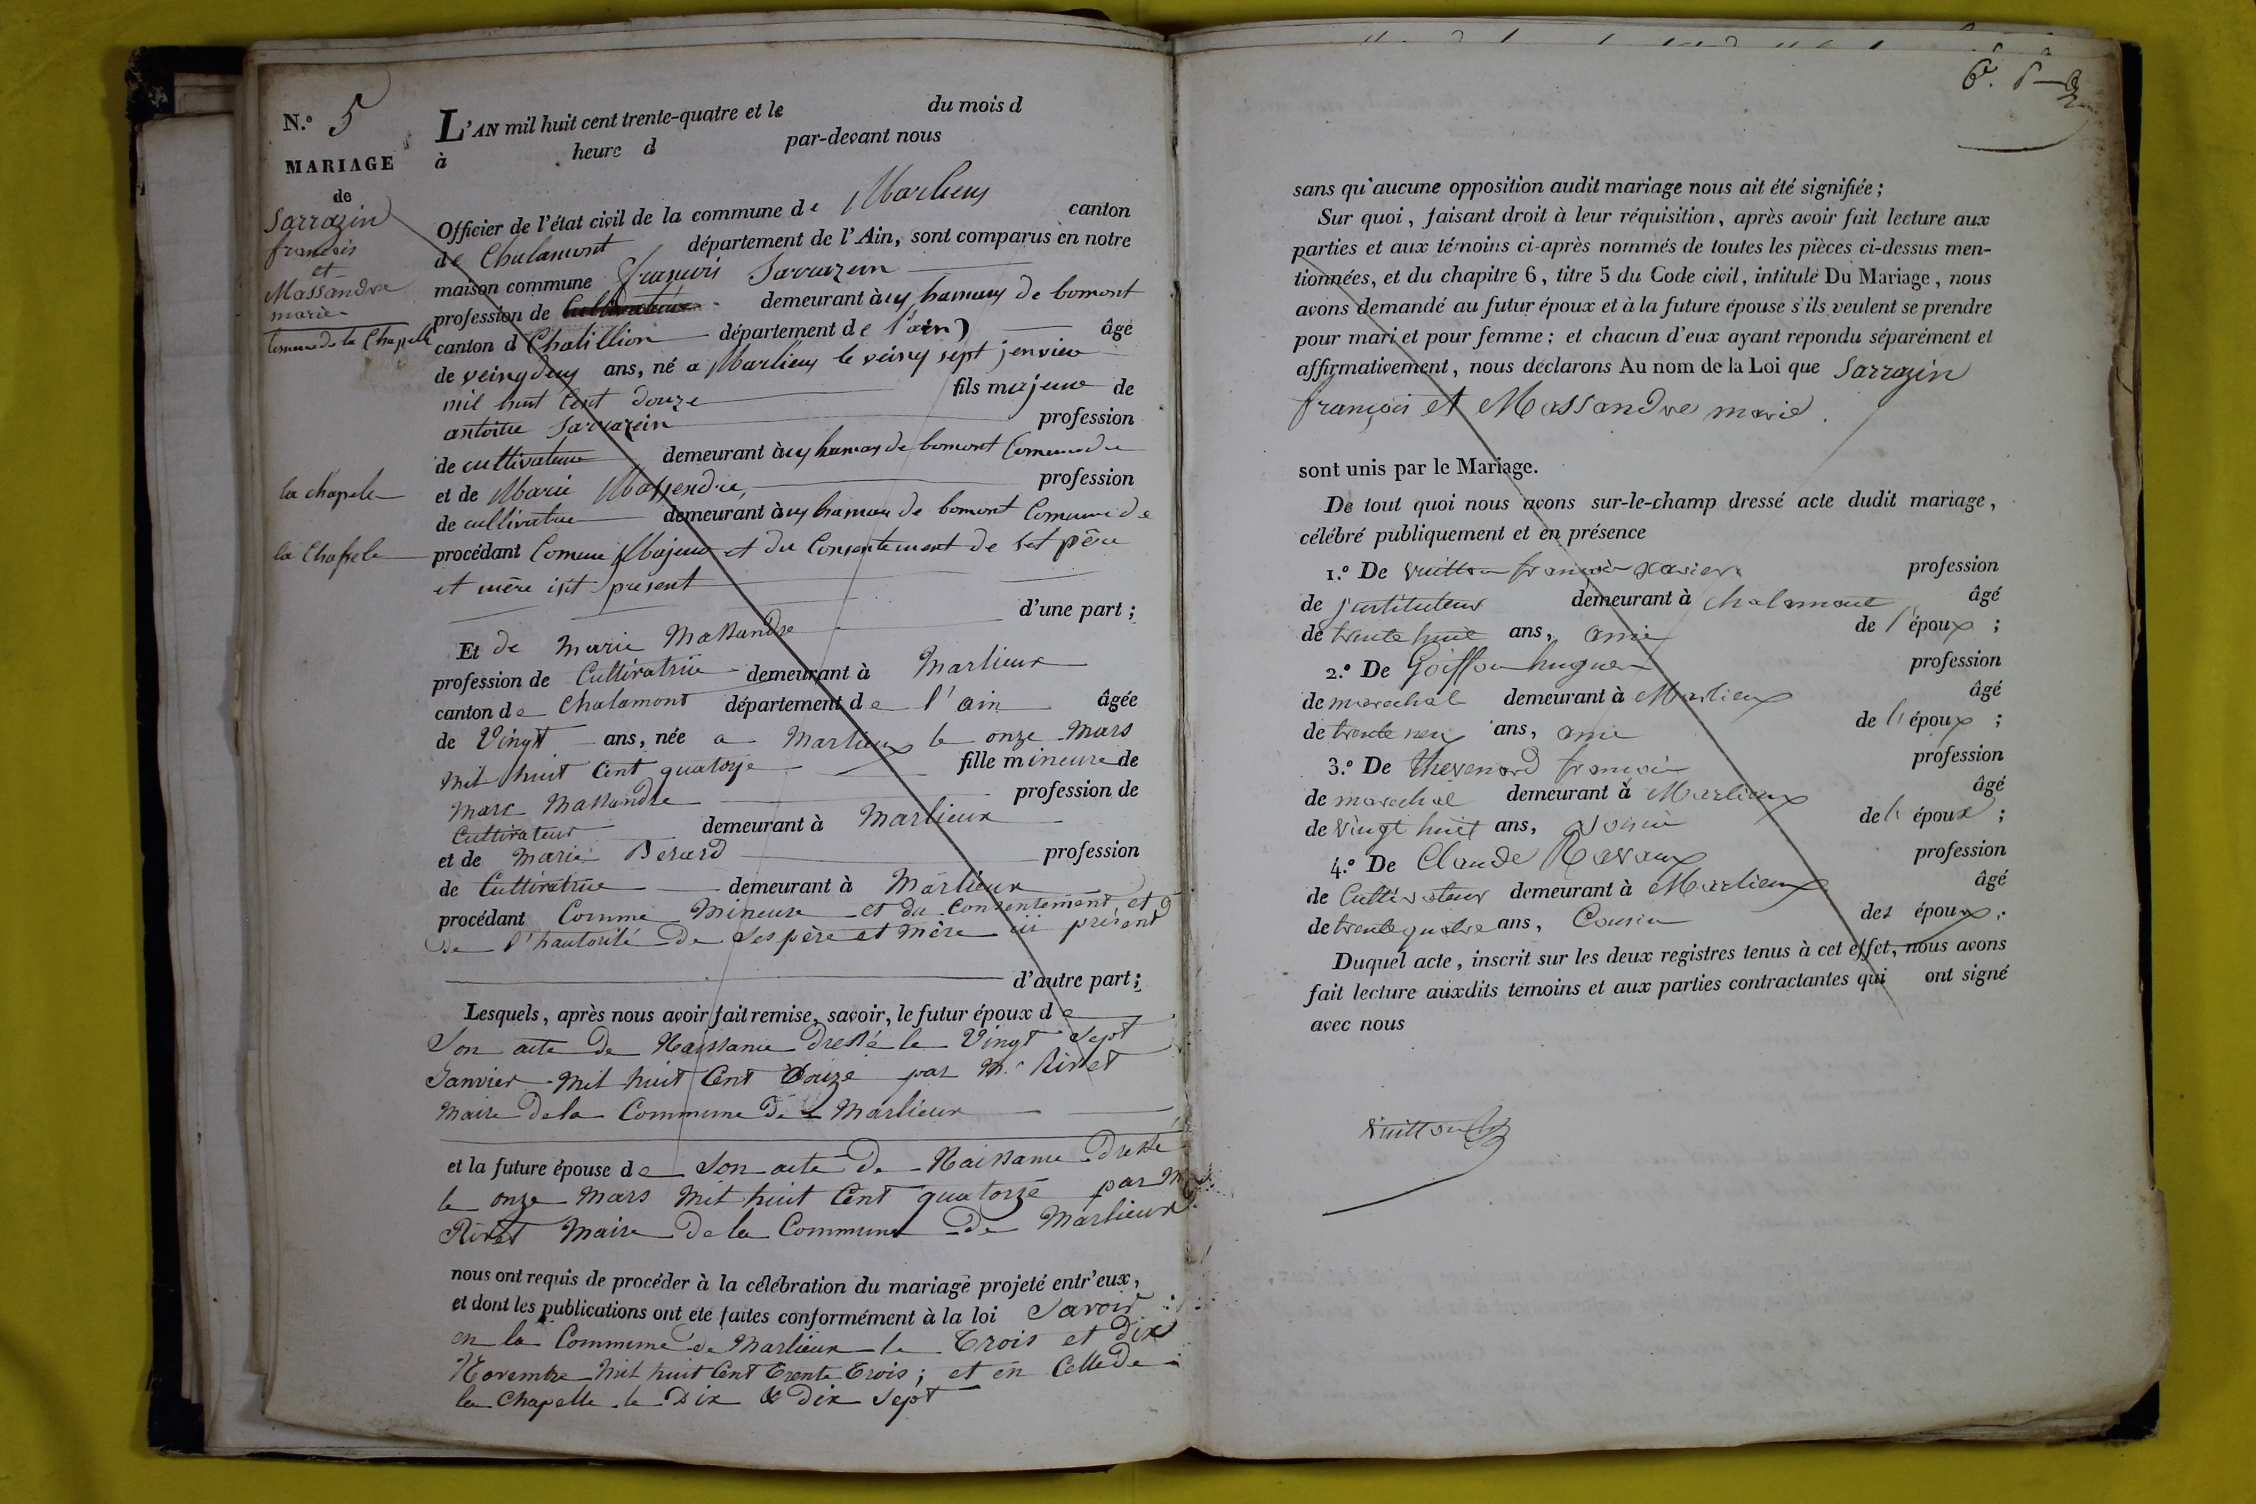 N.º 5
MARIAGE
de
Sarrazin
francois
et
Massandre
marie
Commune de la Chapelle
L'AN mil huit cent trente-quatre et le du mois d
à heure d par-devant nous
Officier de l'état civil de la commune de Marlieux canton
de Chalamont département de l'Ain, sont comparus en notre
maison commune françois Sarrazein
profession de demeurant à uy hamauy de bomont
canton d Chatillion département de l'ain) âgé
de veingdeuy ans, né a Marlieuy le veiny sept jenvieu
mil huit Cent douze fils majeure de
antoine Sarrazein profession
de cultivateur demeurant à uy hamay de bomont Comune de
la chapele
et de Marie Massendre, profession
de cultivatrie demeurant à uy hamau de bomont Comune de
la Chapele
procédant Comme Majeur et du Consentement de set père
et mère isit présent
d'une part ;
Et de Marie Massandre
profession de Cultivatrice demeurant à Marlieux
canton de Chalamont département de l'ain âgée
de Vingt ans, née a Marlieux le onze Mars
Mil huit Cent quatorze fille mineure de
Marc Massandre profession de
Cultivateur demeurant à Marlieux
et de Marie Berard profession
de Cultivatrice demeurant à Marlieux
procédant Comme Mineure et du Consentement et
de l'hautorité de Ses père et Mère ici présent
d'autre part ;
Lesquels, après nous avoir fait remise, savoir, le futur époux de
Son acte de Naissance dressé le Vingt Sept
Janvier Mil huit Cent Douze par Mr Rivet
Maire de la Commune de Marlieux
et la future épouse de Son acte de Naissance dressé
le onze Mars Mil huit Cent quatorze par Mr
Rivet Maire de la Commune de Marlieux
nous ont requis de procéder à la célébration du mariage projeté entr'eux,
et dont les publications ont été faites conformément à la loi Savoir :
en la Commune de Marlieux le Trois et Dix
Novembre Mil huit Cent Trente Trois ; et en Celle de
la Chapelle le Dix & Dix Sept
sans qu'aucune opposition audit mariage nous ait été signifiée ;
Sur quoi, faisant droit à leur réquisition, après avoir fait lecture aux
parties et aux témoins ci-après nommés de toutes les pièces ci-dessus men-
tionnées, et du chapitre 6, titre 5 du Code civil, intitulé Du Mariage, nous
avons demandé au futur époux et à la future épouse s'ils veulent se prendre
pour mari et pour femme ; et chacun d'eux ayant repondu séparément et
affirmativement, nous déclarons Au nom de la Loi que Sarrazin
françois et Massandre marie.
sont unis par le Mariage.
De tout quoi nous avons sur-le-champ dressé acte dudit mariage,
célébré publiquement et en présence
1.º De Vuitton françois xavier profession
de jnstituteur demeurant à Chalamont âgé
de trente huit ans, amie de l'époux ;
2.º De Goiffon hugues profession
de marechal demeurant à Marlieux âgé
de trente neuf ans, amie de l'époux ;
3.º De thevenard françois profession
de marechal demeurant à Marlieux âgé
de vingt huit ans, voisin de l'époux ;
4.º De Claude Ravaux profession
de Cultivateur demeurant à Marlieux âgé
de trente quatre ans, Cousin des époux.
Duquel acte, inscrit sur les deux registres tenus à cet effet, nous avons
fait lecture auxdits témoins et aux parties contractantes qui ont signé
avec nous
Vuitton